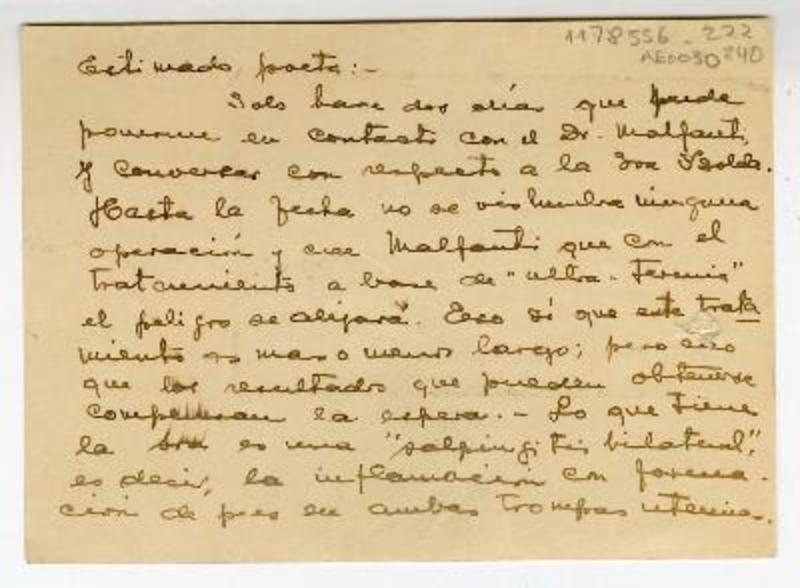 1178556_222
AE0030240
Estimado poeta:-
Solo hace dos días que pude
ponerme en contacto con el Dr. Malfanti,
y conversar con respecto a la Sra Isolda.
Hasta la fecha no se vislumbra ninguna
operación y cree Malfanti que con el
tratamiento a base de "ultra-
el peligro se alejará. Eso sí que este trata
miento es mas o menos largo; pero creo
que los resultados que pueden obtenerse
compensan la espera.- Lo que tiene
la es una "salpingitis bilateral",
es decir, la inflamación con forma-
ción de pus en ambas trompas uterinas.